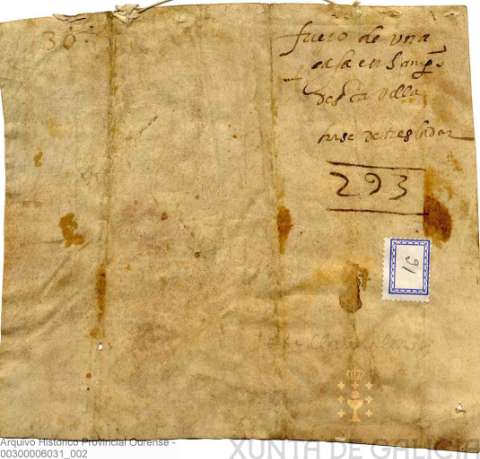 30
fuero de una
casa en
desta villa
nuse de
293
16
Arquivo Histórico Provincial Ourense -
00300006031_002
XUNTA DE GALICIA